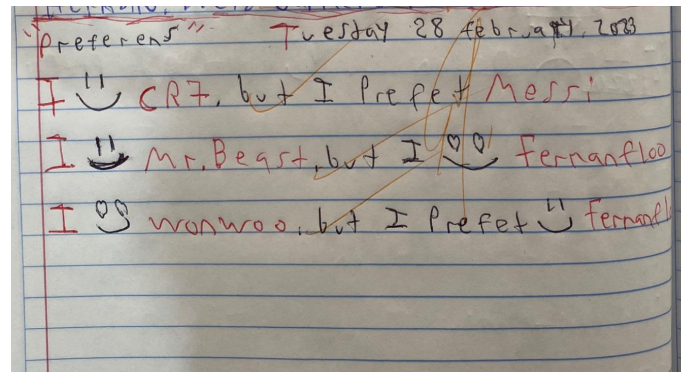 "Preferens" Tuestay 28 february, 2023
I CR7, but I Prefet Messi
I Mr.Beast, but I Fernanfloo
I wonwoo, but I Prefet Fernanfl